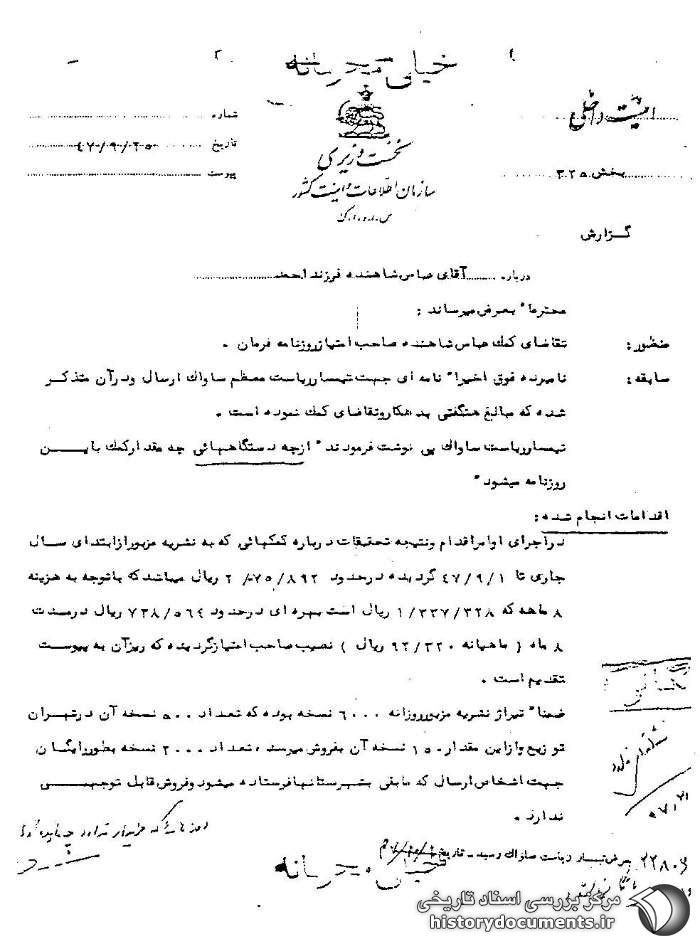 خیلی محرمانه
امنیت داخلی
شماره
نخست وزیری
تاریخ ۴۷/۹/۲۵
بخش ۳۲۵
سازمان اطلاعات و امنیت کشور
پیوست
س.ا.و.ا.ک
گزارش
درباره آقای عباس شاهنده فرزند احمد
محترما" بعرض میرساند :
منظور : تقاضای کمک عباس شاهنده صاحب امتیاز روزنامه فرمان .
سابقه : نامبرده فوق اخیرا" نامه ای جهت تیمسار ریاست معظم ساواک ارسال و در آن متذکر
شده که مبالغ هنگفتی بدهکار و تقاضای کمک نموده است .
تیمسار ریاست ساواک پی نوشت فرمودند " از چه دستگاههائی چه مقدار کمک باین
روزنامه میشود"
اقدامات انجام شده :
در اجرای اوامر اقدام و نتیجه تحقیقات درباره کمکهائی که به نشریه مزبور از ابتدای سال
جاری تا ۴۷/۹/۱ گردیده در حدود ۲/۰۷۵/۸۹۲ ریال میباشد که باتوجه به هزینه
۸ ماهه که ۱/۳۳۷/۳۲۸ ریال است بهره ای در حدود ۷۳۸/۵۶۴ ریال در مدت
۸ ماه ( ماهیانه ۹۲/۳۲۰ ریال ) نصیب صاحب امتیاز گردیده که ریز آن به پیوست
تقدیم است .
ضمنا" تیراژ نشریه مزبور روزانه ۶۰۰۰ نسخه بوده که تعداد ۵۰۰ نسخه آن در تهران
توزیع و از این مقدار ۱۵۰ نسخه آن بفروش میرسد ، تعداد ۲۰۰۰ نسخه بطور رایگان
جهت اشخاص ارسال که مابقی بشهرستانها فرستاده میشود و فروش قابل توجهی
ندارد .
روزنامه که خریدار ندارد
بعرض تیمسار ریاست ساواک رسید - تاریخ
خیلی محرمانه
مرکز بررسی اسناد تاریخی
historydocuments.ir